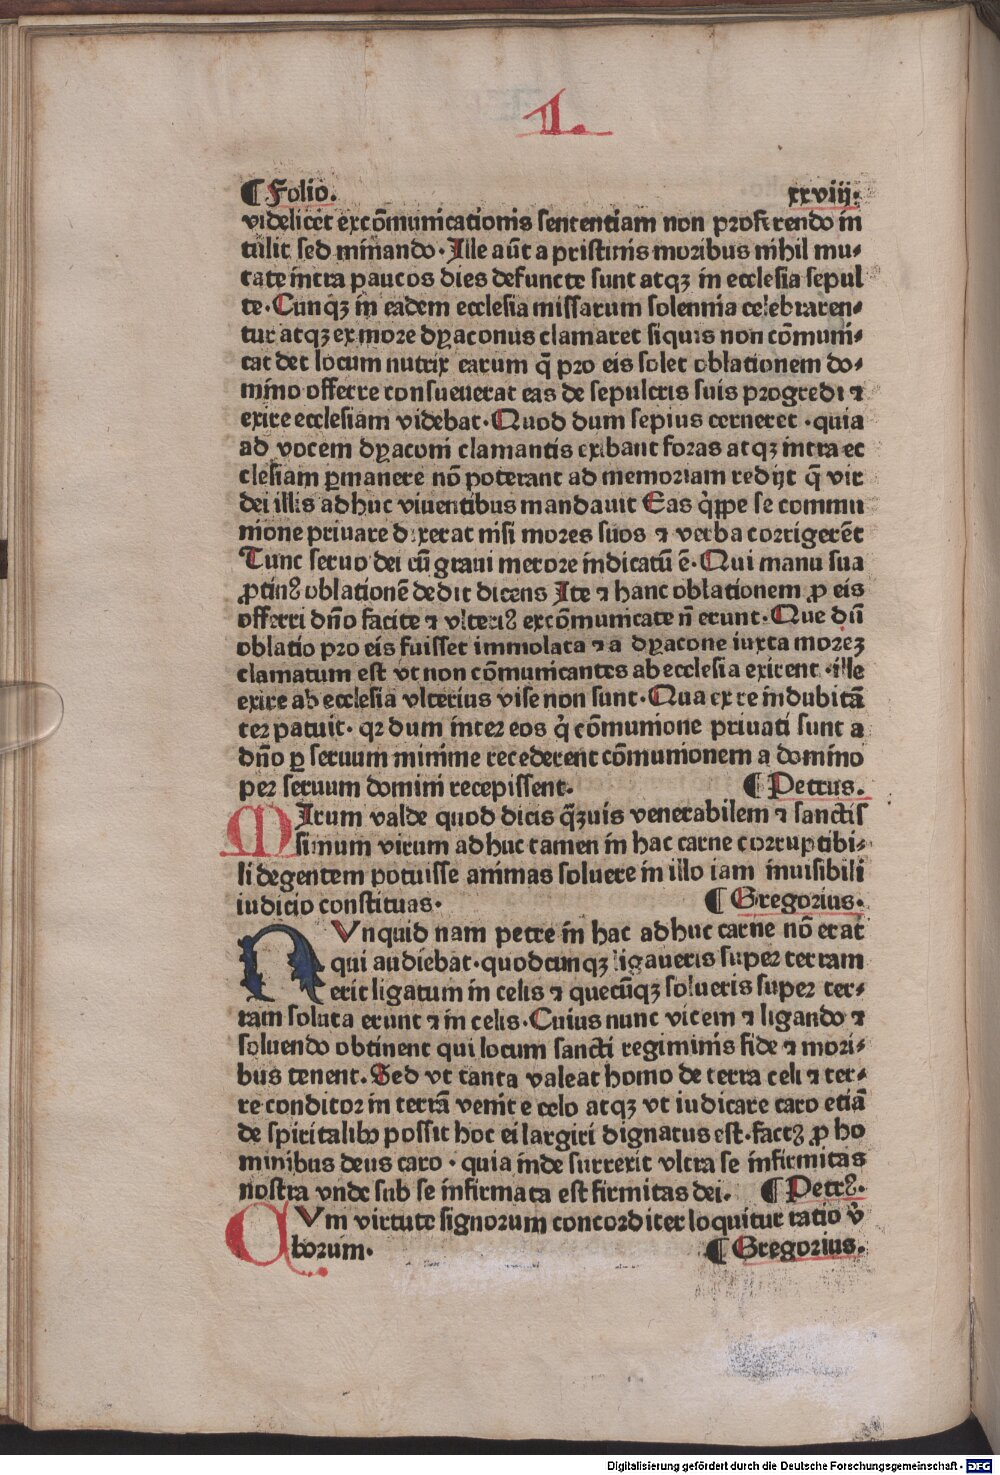 1.
¶ Folio. xxviij:
videlicet excōmunicationis sententiam non proferendo in
tulit sed minando. Ille aūt a pristinis moribus nihil mu⸗
tate intra paucos dies defuncte sunt atqꝫ in ecclesia sepul
te. Cunqꝫ in eadem ecclesia missarum solennia celebraren⸗
tur atqꝫ ex more dyaconus clamaret siquis non cōmuni⸗
cat det locum nutrix earum q̄ pro eis solet oblationem do⸗
mino offerre consueuerat eas de sepulcris suis progredi ⁊
exire ecclesiam videbat. Quod dum sepius cerneret . quia
ad vocem dyaconi clamantis exibant foras atqꝫ intra ec
clesiam ꝑmanere nō poterant ad memoriam redijt q̄ vir
dei illis adhuc viuentibus mandauit Eas q̇ppe se commu
nione priuare dixerat nisi mores suos ⁊ verba corrigerēt
Tunc seruo dei cū graui merore indicatū ē. Qui manu sua
ꝓtinꝰ oblationē dedit dicens Ite ⁊ hanc oblationem ꝓ eis
offerri dn̄o facite ⁊ vlteriꝰ excōmunicate n̄ erunt. Que dū
oblatio pro eis fuisset immolata ⁊ a dyacone iuxta moreꝫ
clamatum est vt non cōmunicantes ab ecclesia exirent . ille
exire ab ecclesia vlterius vise non sunt. Qua ex re indubitā
ter patuit. qꝛ dum inter eos q̇ cōmunione priuati sunt a
dn̄o ꝑ seruum minime recederent cōmunionem a domino
per seruum domini recepissent. ¶ Petrus.
MIrum valde quod dicis q̄ꝫuis venerabilem ⁊ sanctis
simum virum adhuc tamen in hac carne corruptibi⸗
li degentem potuisse animas soluere in illo iam inuisibili
iudicio constitutas. ¶ Gregorius.
NVnquid nam petre in hac adhuc carne nō erat
qui audiebat. quodcunqꝫ ligaueris super terram
erit ligatum in celis ⁊ quecūqꝫ solueris super ter⸗
ram soluta erunt ⁊ in celis. Cuius nunc vicem ⁊ ligando ⁊
soluendo obtinent qui locum sancti regiminis fide ⁊ mori⸗
bus tenent. Sed vt tanta valeat homo de terra celi ⁊ ter⸗
re conditor in terrā venit e celo atqꝫ vt iudicare caro etiā
de spiritalibꝰ possit hoc ei largiri dignatus est. factꝰ ꝓ ho
minibus deus caro . quia inde surrexit vltra se infirmitas
nostra vnde sub se infirmata est firmitas dei. ¶ Petrꝰ.
CVm virtute signorum concorditer loquitur ratio v̾
borum. ¶ Gregorius.
Digitalisierung gefördert durch die Deutsche Forschungsgemeinschaft - DFG